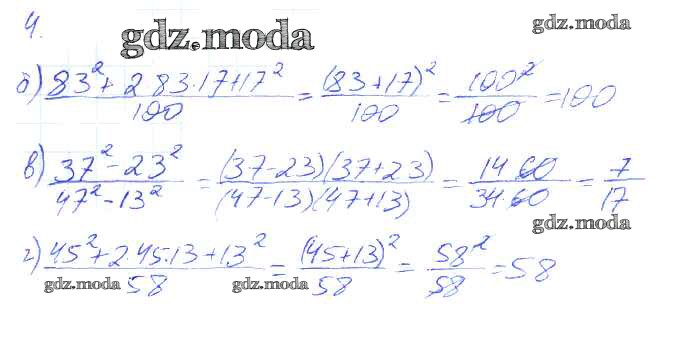 4.
gdz.moda
gdz.moda
б) (83² + 2·83·17+17²)/100 = (83+17)²/100 = 100²/100 = 100
в) (37² - 23²)/(47² - 13²) = (37-23)(37+23)/(47-13)(47+13) = 14·60/34·60 = 7/17
gdz.moda
г) (45² + 2·45·13 + 13²)/58 = (45+13)²/58 = 58²/58 = 58
gdz.moda
gdz.moda